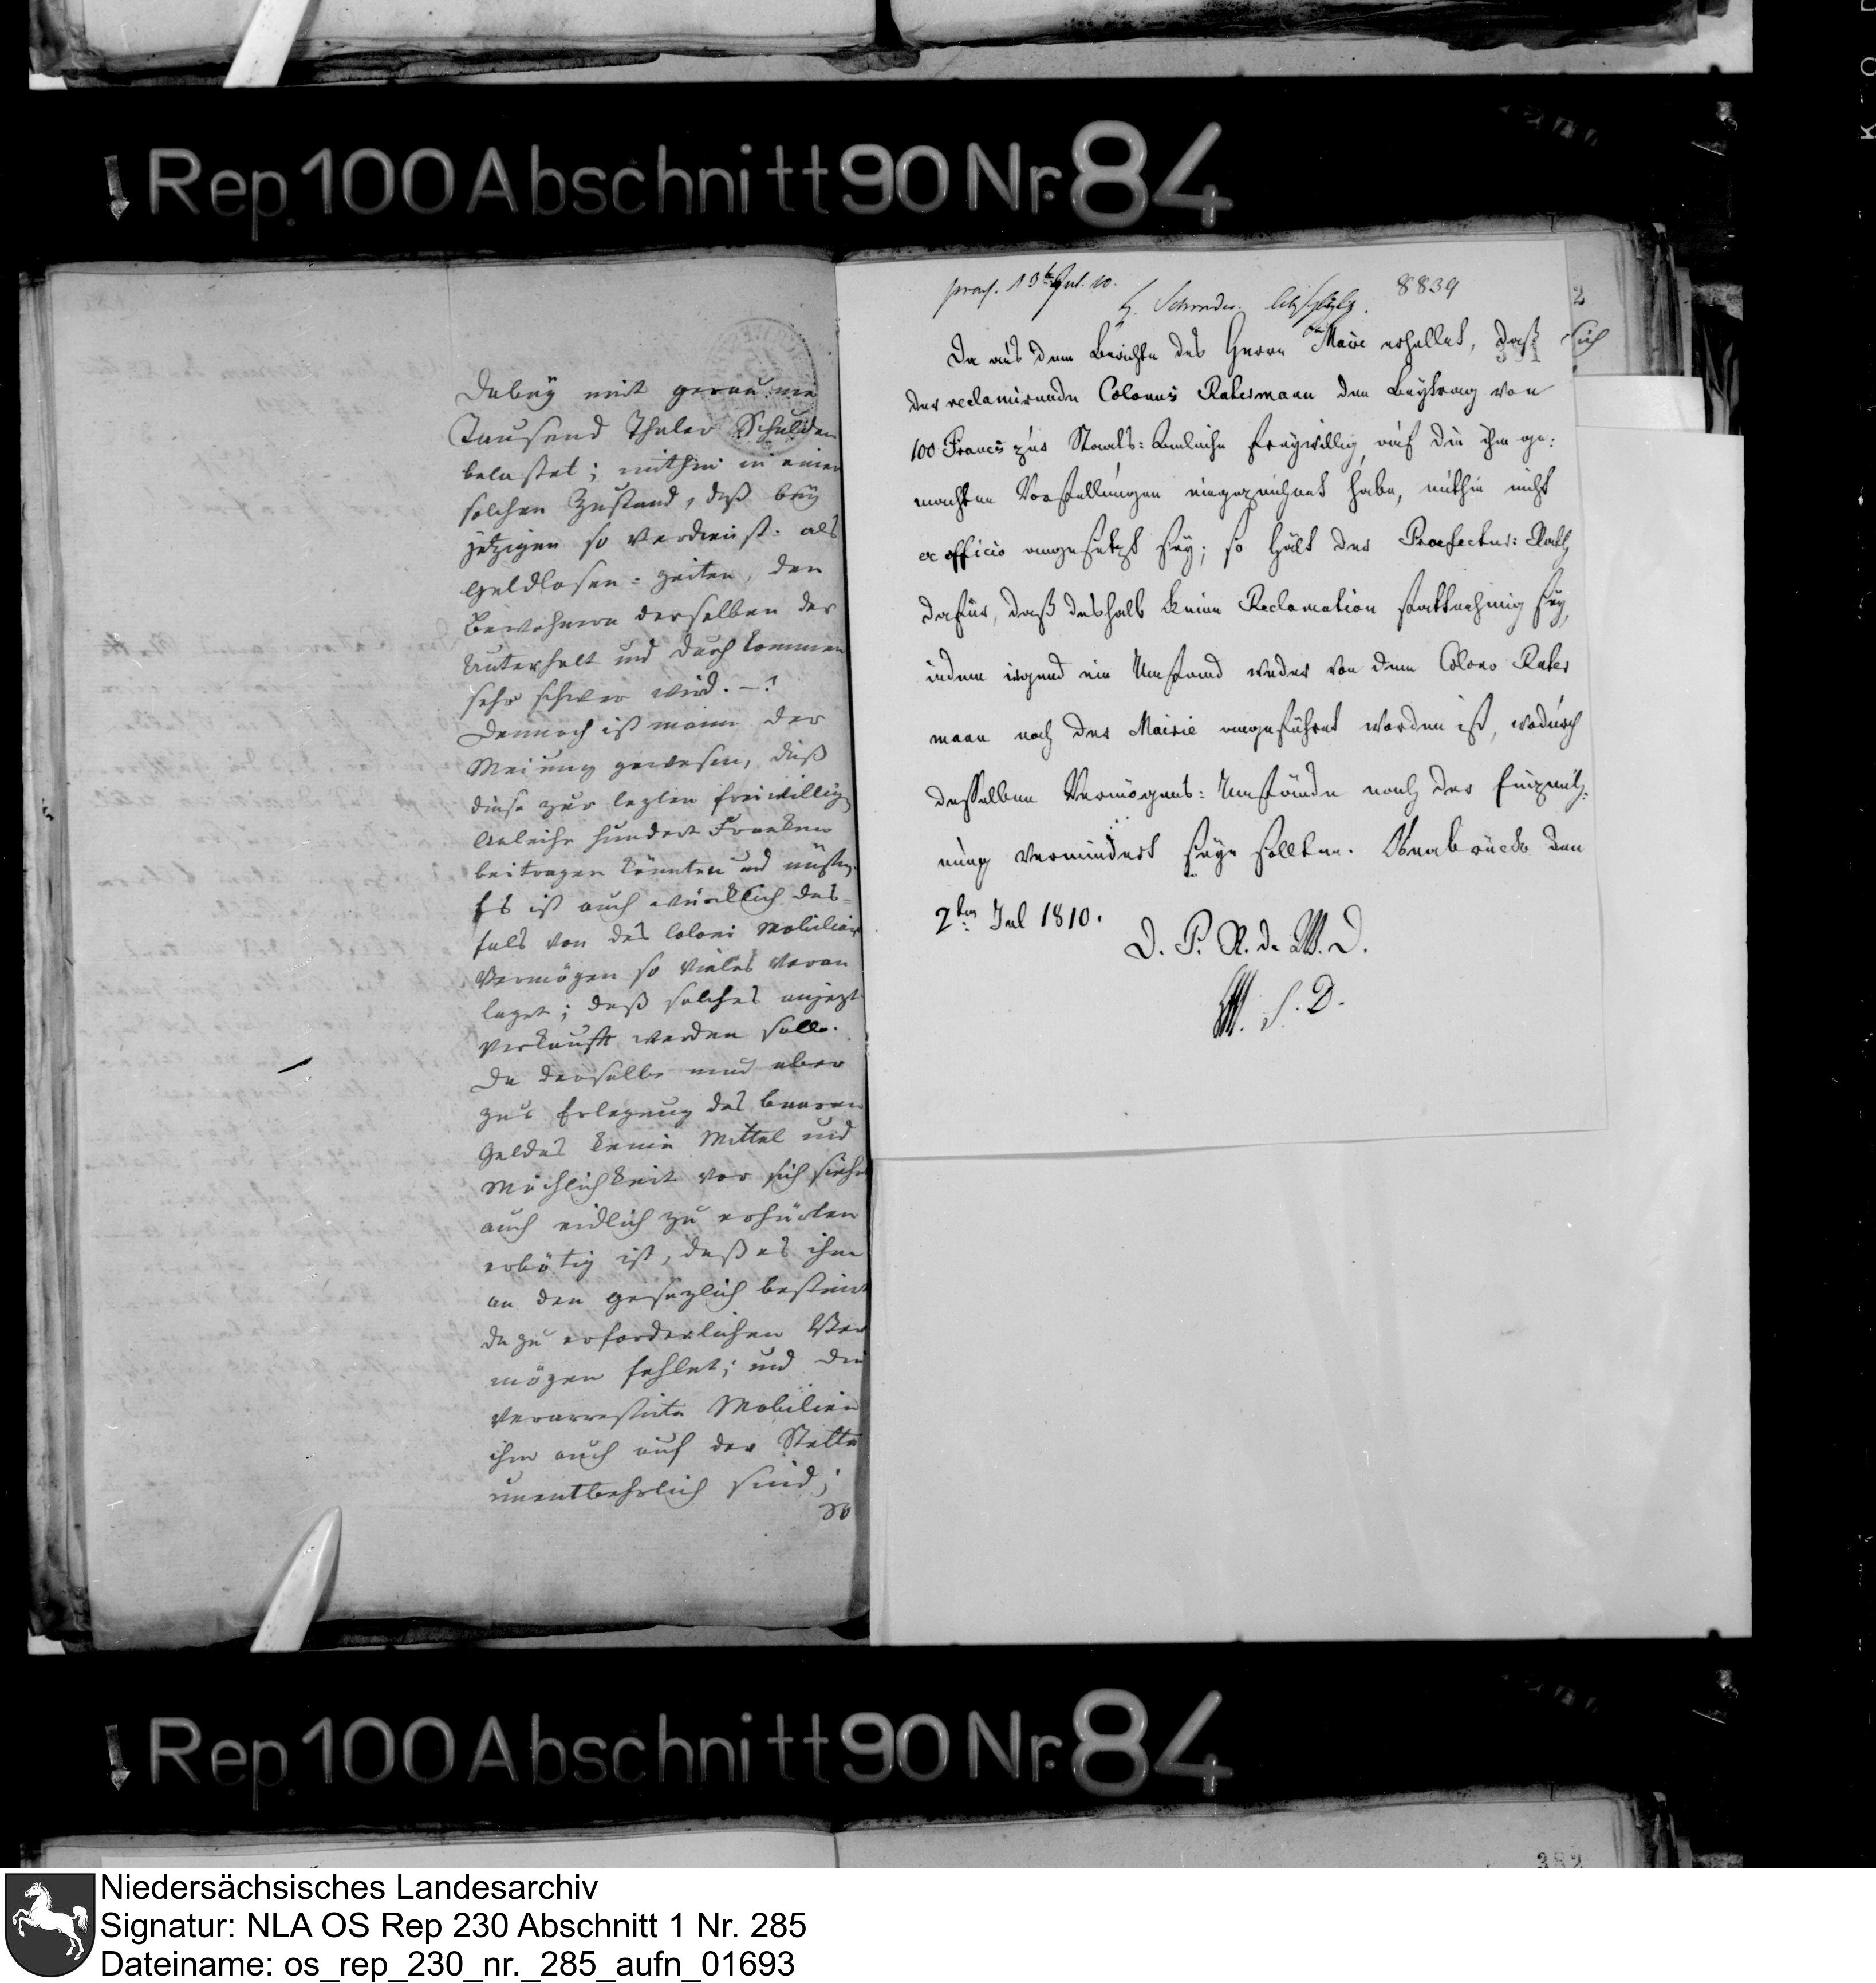 Rep. 100 Abschnitt 90 Nr. 84
dabey mit geraume
Tausend Thaler Schulden
belastet; mithin in einem
solchen Zustand, daß bey
jetzigen so verdienst- als
geldlosen-zeiten, den
Bewohnern derselben der
Unterhalt und durchkommen
sehr schwer wird. –!
Dennoch ist mann der
Meinung gewesen, daß
diese zur lezten freiwillig
Anleihe hundert Franken
beitragen könnten und müßte.
Es ist auch würcklich des-
fals von des Coloni Mobiliar
Vermögen so vieles veran
laget; daß solches anjezt
verkauft werden solle.
Da derselbe nun aber
zur Erlegung des baaren
Geldes keine Mittel und
Möglichkeit vor sich siehet
auch eidlich zu erhärten
erbötig ist, daß es ihm
an den gesezlich bestimt
dazu erforderlichen Ver
mögen fehlet; und die
verarrestirte Mobilien
ihm auch auf der Stette
unentbehrlich sind;
so
praes. 13t Jul. 10.
H. Schrader.
8839
2
Da aus dem Berichte des Herrn Maire erhellet, daß
sich
der reclamirende Colonus Rakermann den Beytrag von
100 Francs zur Staats-Anleihe freywillig, auf die ihm ge-
machten Vorstellungen eingezeichnet habe, mithin nicht
ex officio angesetzt sey; so hält der Praefectur-Rath
dafür, daß deshalb keine Reclamation statthaft sey,
indem irgend ein Umstand weder von dem Colono Raker
mann noch der Mairie angeführet worden ist, wodurch
desselben Vermögens-Umstände nach der Einzeich-
nung vermindert seyn sollten. Osnabrück den
2ten Jul 1810.
D. P. R. d. W. D.
S. D.
Rep. 100 Abschnitt 90 Nr. 84
382
Niedersächsisches Landesarchiv
Signatur: NLA OS Rep 230 Abschnitt 1 Nr. 285
Dateiname: os_rep_230_nr._285_aufn_01693